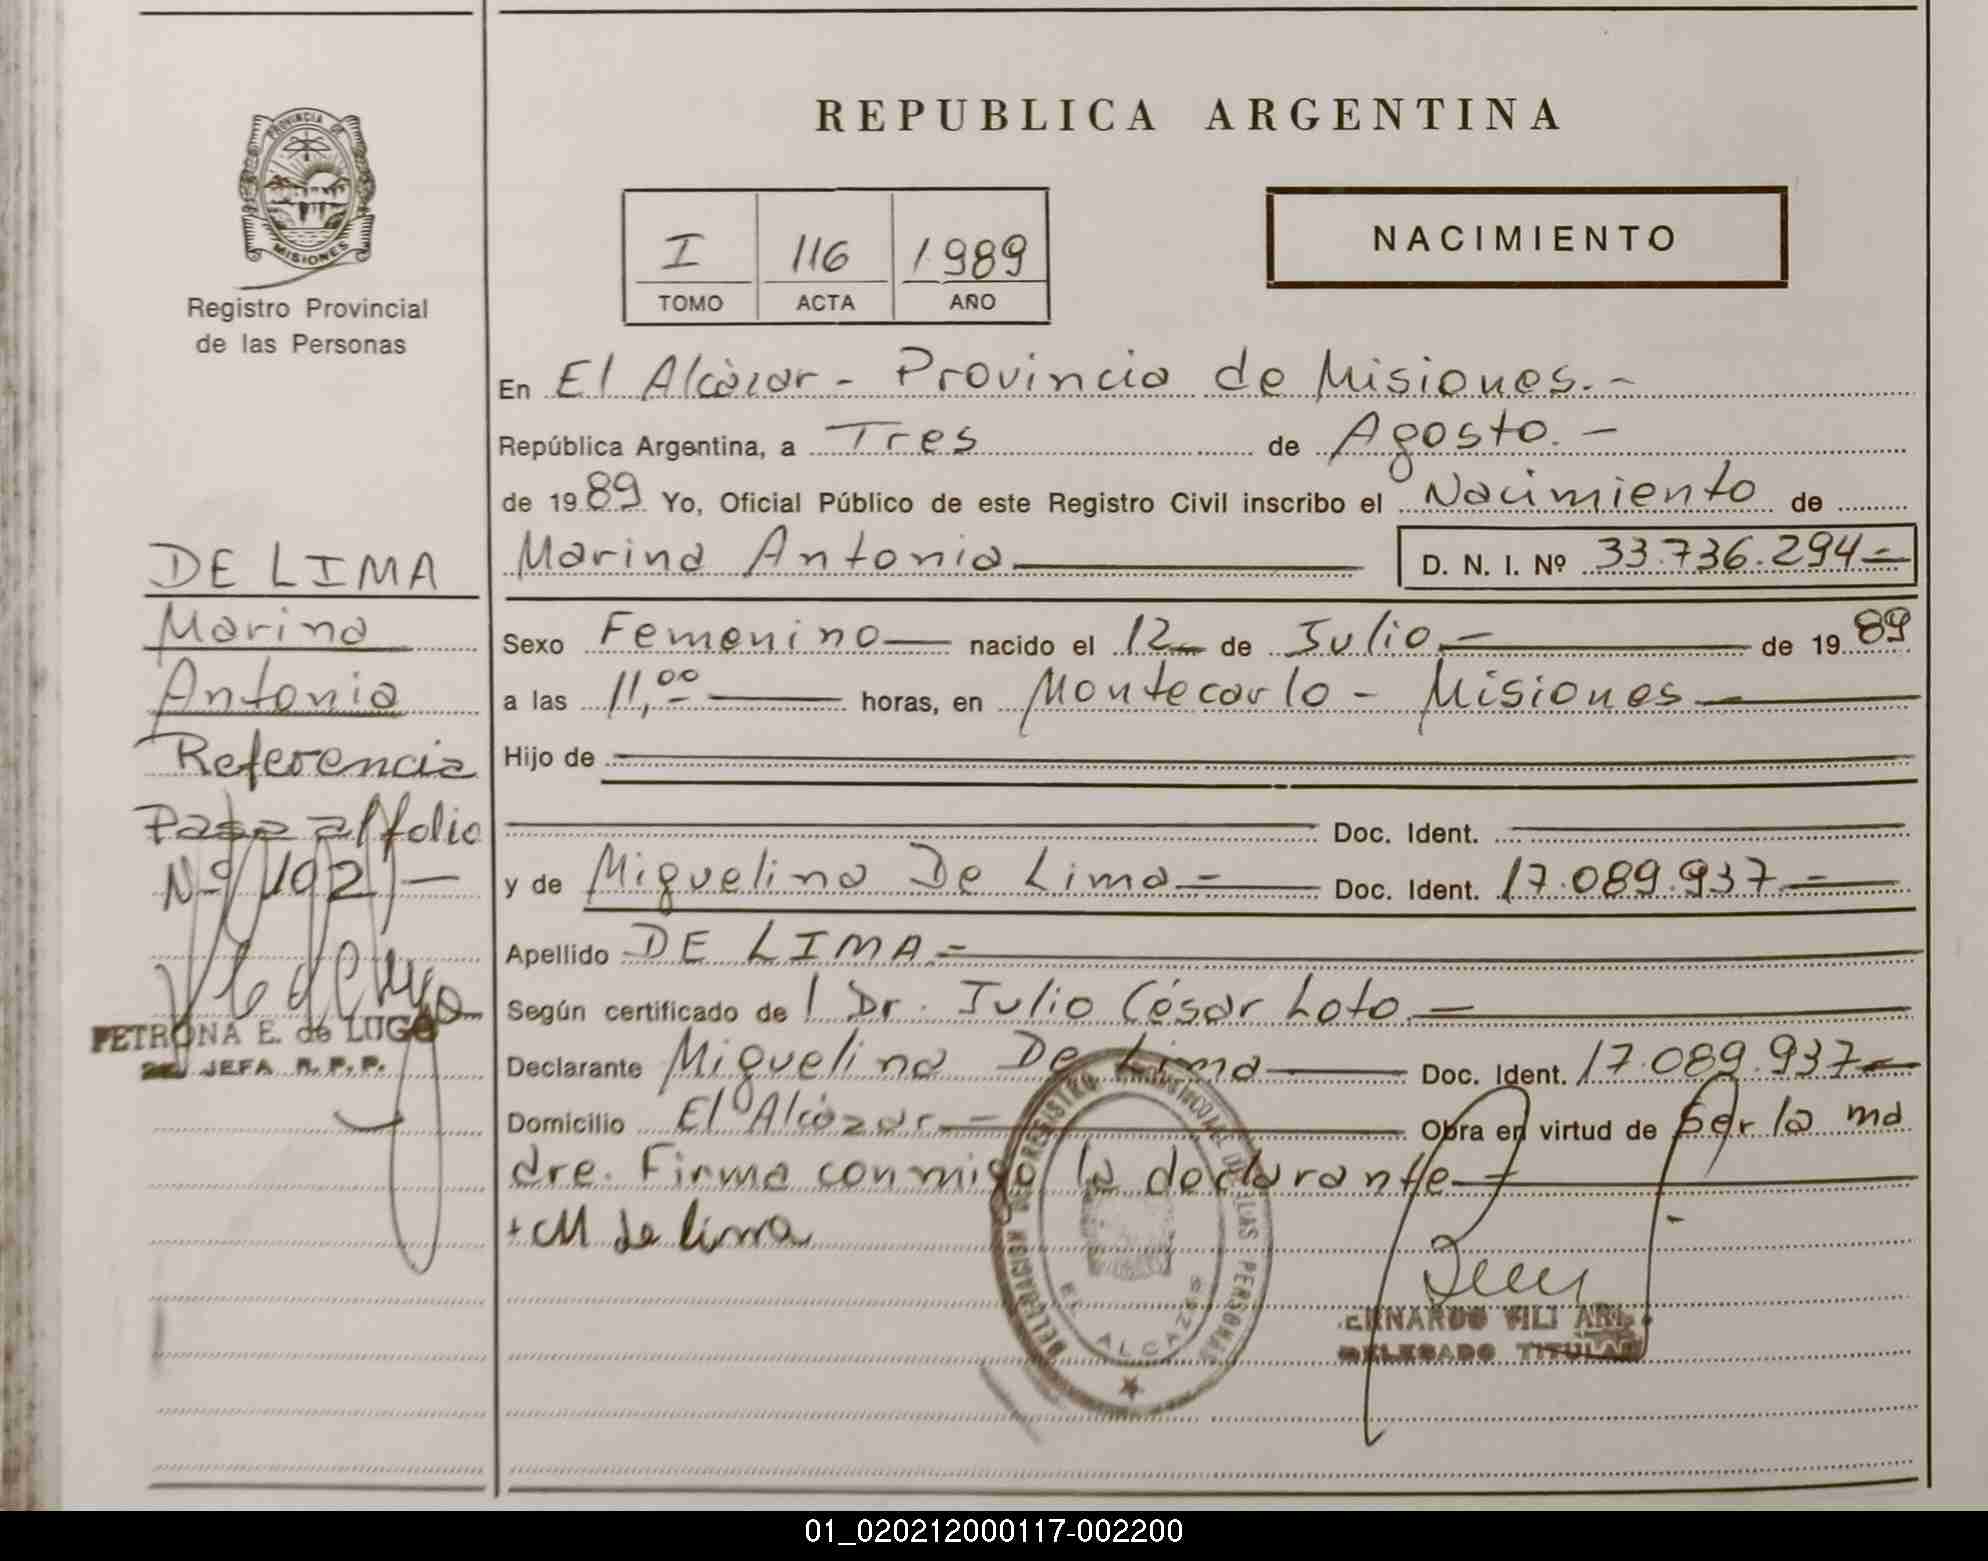 REPUBLICA ARGENTINA
PROVINCIA DE
MISIONES
Registro Provincial
de las Personas
I 116 1989
TOMO ACTA AÑO
NACIMIENTO
En El Alcázar - Provincia de Misiones.-
República Argentina, a Tres de Agosto.-
de 1989 Yo, Oficial Público de este Registro Civil inscribo el Nacimiento de
Marina Antonia D. N. I. Nº 33.736.294=
Sexo Femenino nacido el 12 de Julio.- de 1989
a las 11,00 horas, en Montecarlo - Misiones
Hijo de
Doc. Ident.
y de Miguelina De Lima.- Doc. Ident. 17.089.937.-
Apellido DE LIMA.=
Según certificado de l Dr. Julio César Loto.-
Declarante Miguelina De Lima Doc. Ident. 17.089.937.-
Domicilio El Alcázar.- Obra en virtud de Ser la ma
dre. Firma conmigo la declarante.-
+ M de lima
DELEGACION DEL REGISTRO PROVINCIAL DE LAS PERSONAS
EL ALCAZAR
DELEGADO TITULAR
DE LIMA
Marina
Antonia
Referencia
Pasa al folio
Nº 102 -
PETRONA E. de LUGO
JEFA R. P. P.
01_020212000117-002200